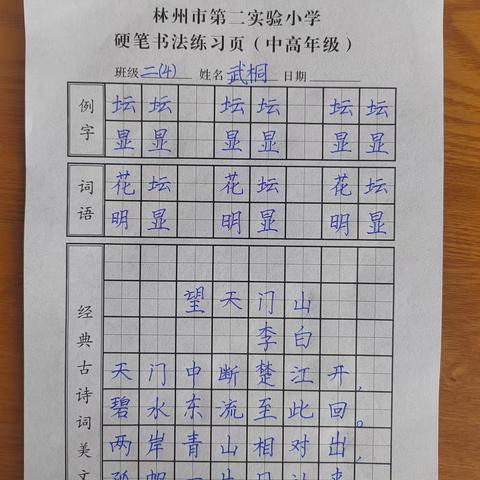 林州市第二实验小学
硬笔书法练习页（中高年级）
班级 二(4) 姓名 武桐 日期
例字
坛坛 坛坛 坛坛
显显 显显 显显
词语
花坛 花坛 花坛
明显 明显 明显
经典古诗词美文
望天门山
李白
天门中断楚江开，
碧水东流至此回。
两岸青山相对出，